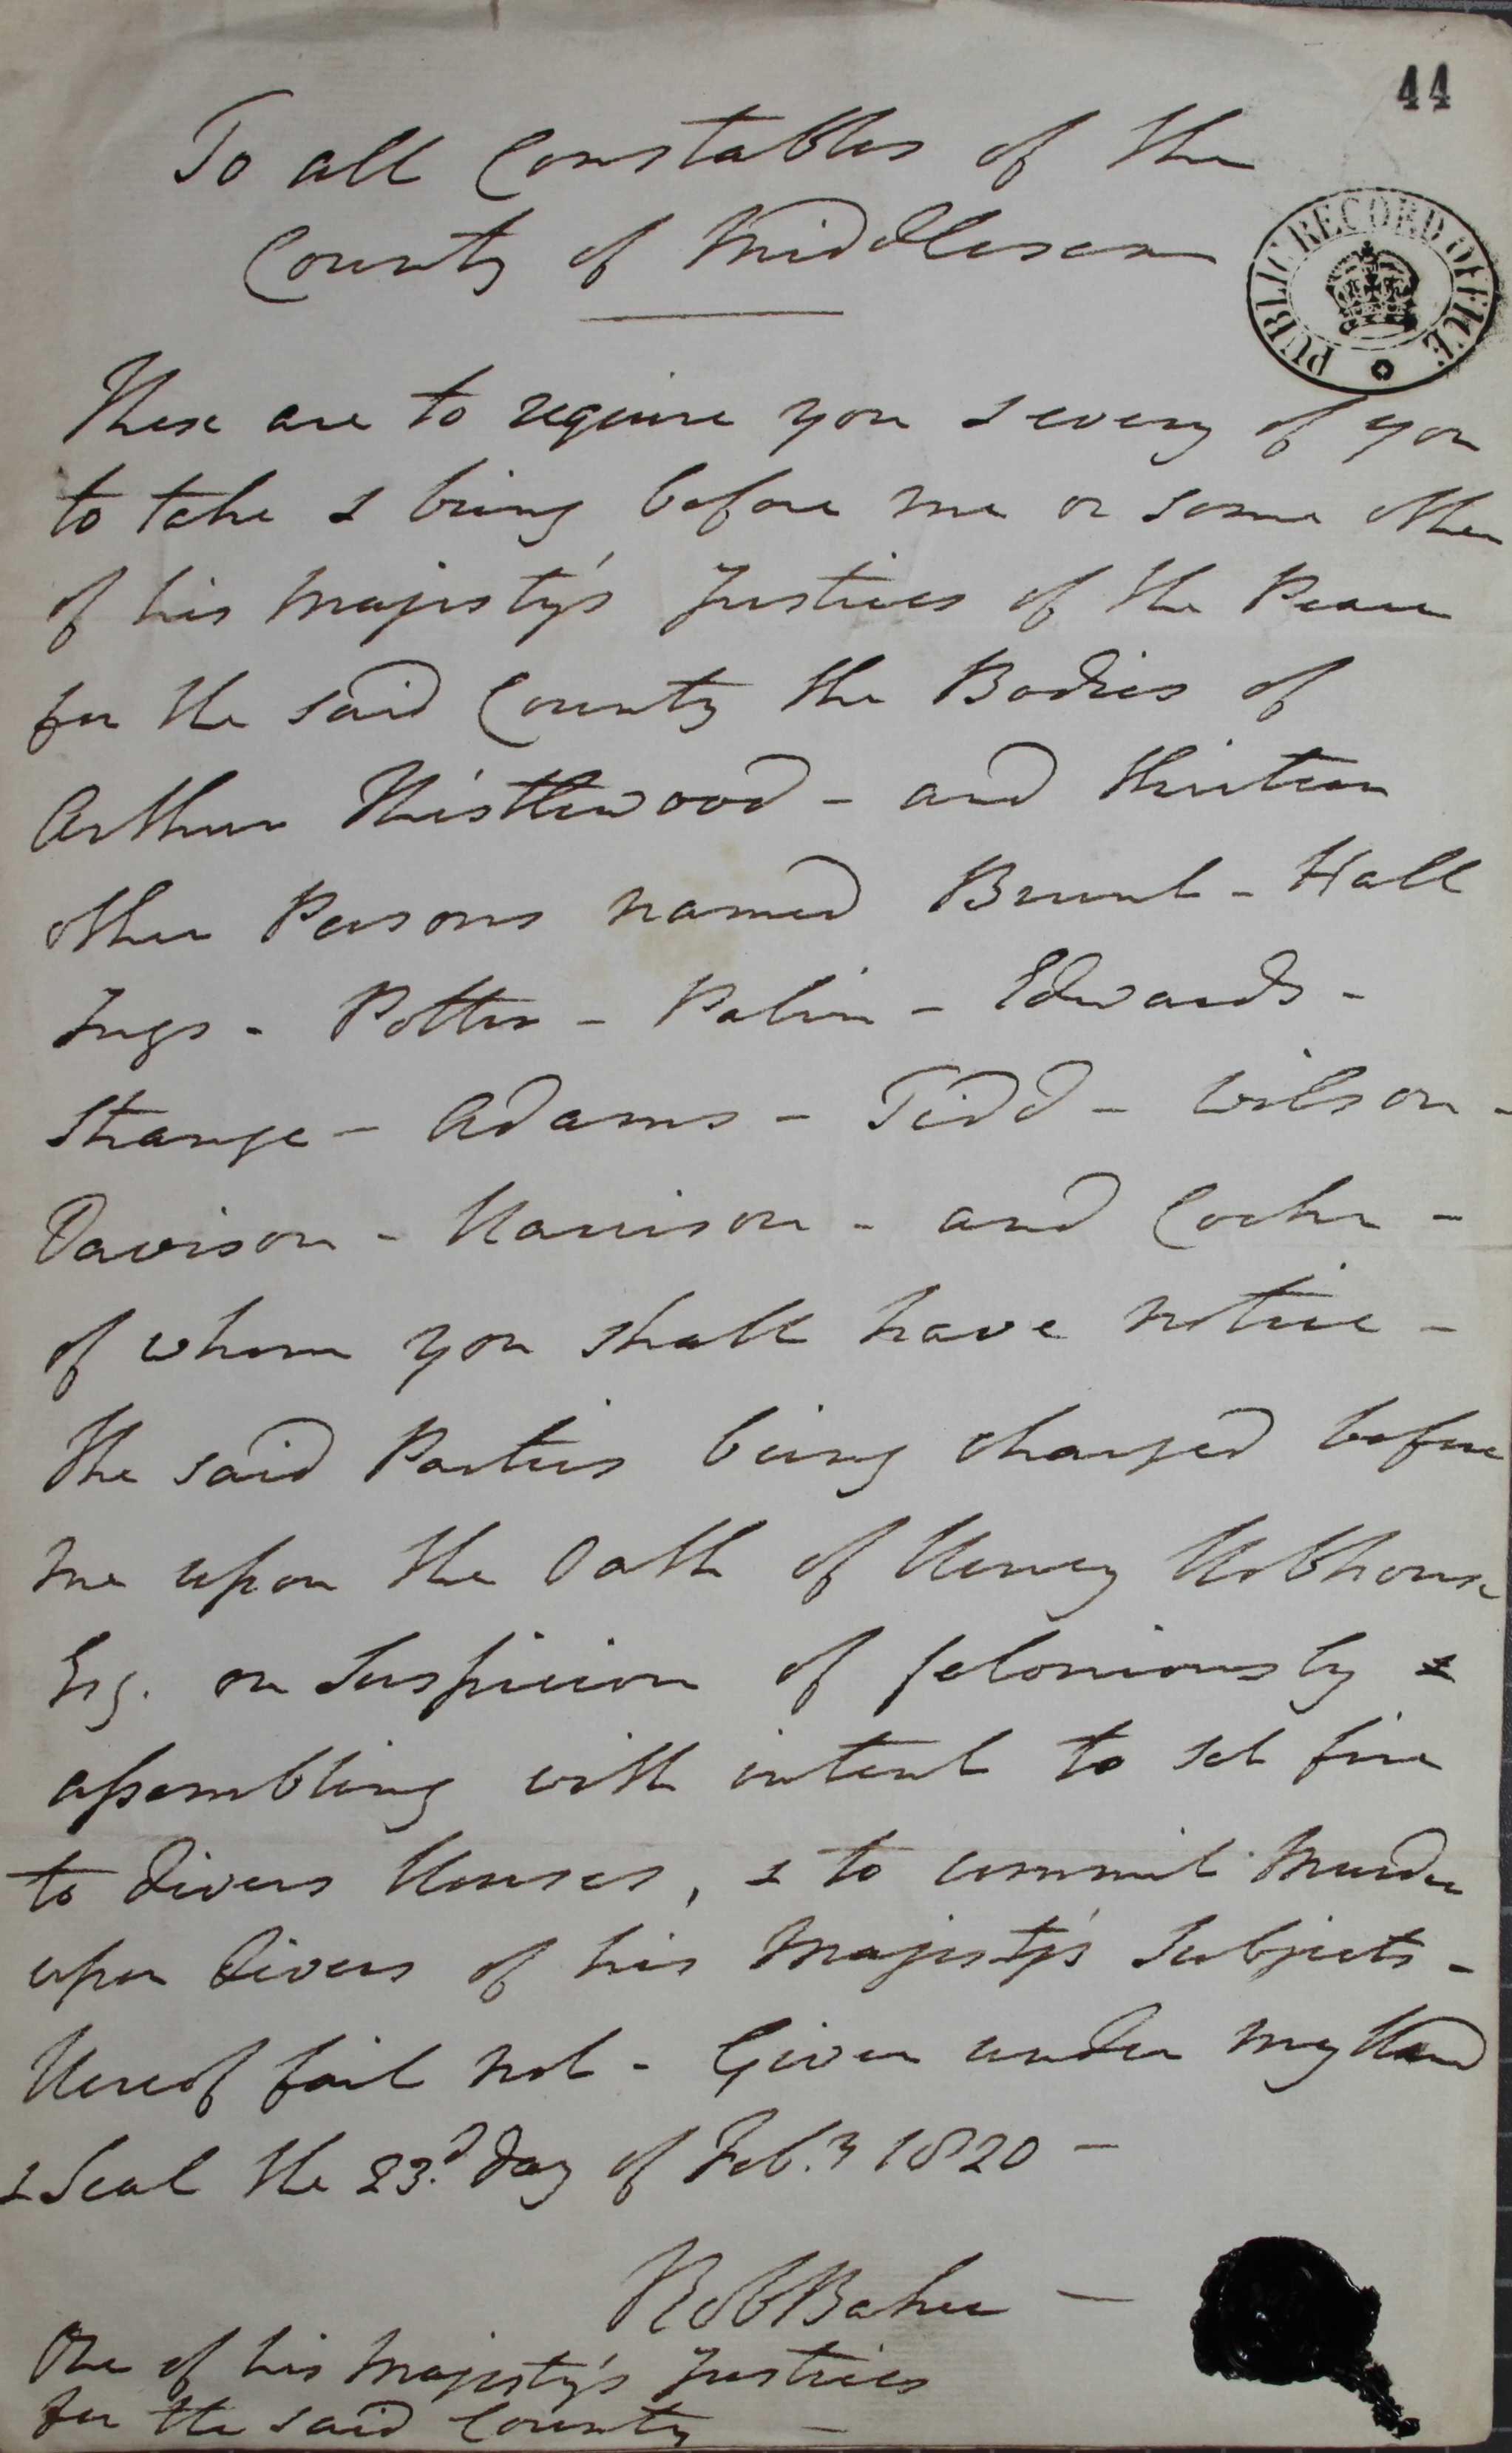 44
To all Constables of the
County of Middlesex
PUBLIC RECORD OFFICE
These are to require you & every of you
to take & bring before me or some other
of his Majesty's Justices of the Peace
for the said County the Bodies of
Arthur Thistlewood - and thirteen
other Persons named Brunt - Hall
Ings - Potter - Palin - Edwards -
Strange - Adams - Tidd - Wilson -
Davison - Harrison - and Cooke -
of whom you shall have notice -
the said Parties being charged before
me upon the Oath of Henry Hobhouse
Esq. on Suspicion of feloniously &
assembling with intent to set fire
to divers Houses, & to commit Murder
upon divers of his Majesty's Subjects -
Hereof fail not - Given under my Hand
& Seal the 23.d day of Feb.y 1820 -
Rob Baker -
One of his Majesty's Justices
for the said County -